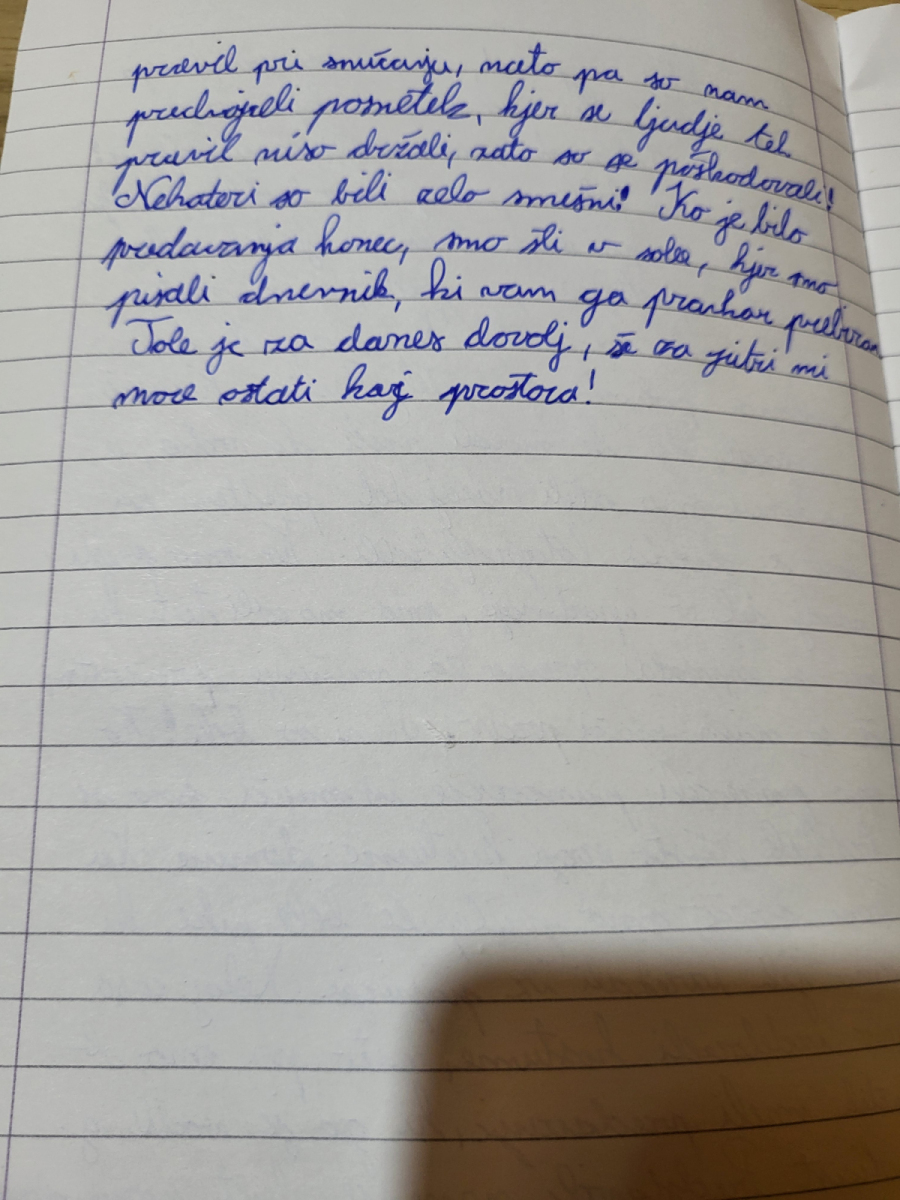 pravil pri smučanju, nato pa so nam
predvajali posnetek, kjer se ljudje teh
pravil niso držali, zato so se poškodovali!
Nekateri so bili zelo smešni! Ko je bilo
predavanja konec, smo šli v sobe, kjer smo
pisali dnevnik, ki vam ga pravkar prebiram
Tole je za danes dovolj, še za jutri mi
more ostati kaj prostora!